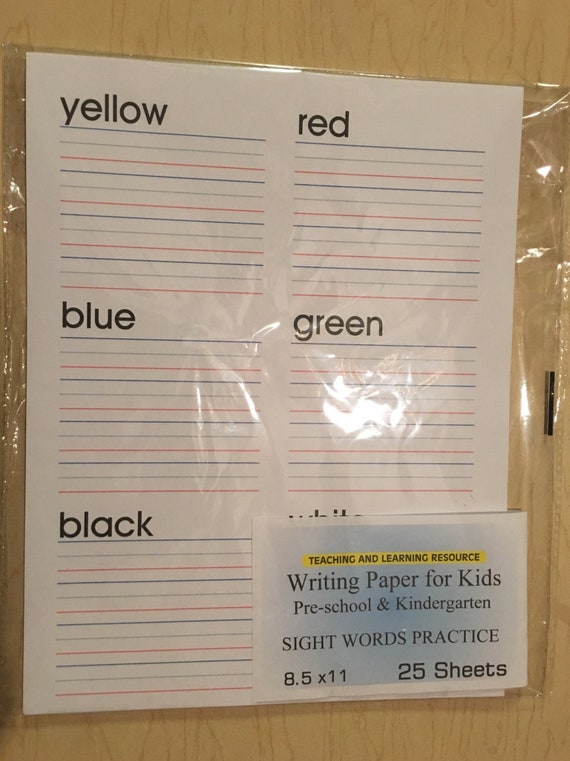 yellow
red
blue
green
black
white
TEACHING AND LEARNING RESOURCE
Writing Paper for Kids
Pre-school & Kindergarten
SIGHT WORDS PRACTICE
8.5 x11 25 Sheets